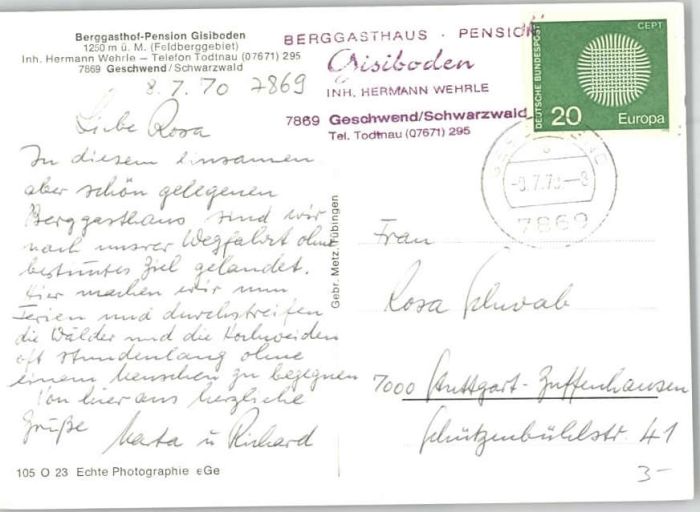 Berggasthof-Pension Gisiboden
1250 m ü. M. (Feldberggebiet)
Inh. Hermann Wehrle – Telefon Todtnau (07671) 295
7869 Geschwend/Schwarzwald
BERGGASTHAUS · PENSION
Gisiboden
INH. HERMANN WEHRLE
7869 Geschwend/Schwarzwald
Tel. Todtnau (07671) 295
DEUTSCHE BUNDESPOST
CEPT
20 Europa
7869
8.7.70 7869
Liebe Rosa
In diesem einsamen
aber schön gelegenen
Berggasthaus sind wir
nach unsrer Wegfahrt ohne
bestimtes Ziel gelandet.
Hier machen wir nun
Ferien und durchstreifen
die Wälder und die Hochweiden
oft stundenlang ohne
einem Menschen zu begegnen
Von hier aus herzliche
Grüße Marta u Richard
Gebr. Metz, Tübingen
Frau
Rosa Schwab
7000 Stuttgart-Zuffenhausen
Schützenbühlstr. 41
3-
105 O 23 Echte Photographie eGe